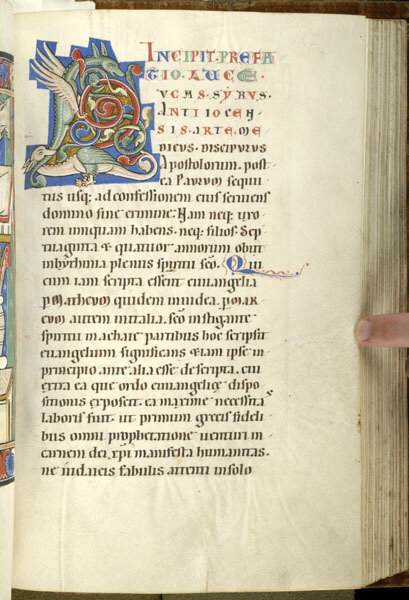 INCIPIT·PREFA
TIO·LUCE
UCAS·SYRUS·
ANTIIOCEN
SIS·ARTE·ME
DICUS·DISCIPULUS
apostolorum·post
ea PAULUM sequu
tus usq; ad confessionem eius seruiens
domino sine crimine· Nam neq; uxo
rem umquam habens· neq; filios· Sep
tuaginta & quatuor annorum obiit
in bythinia plenus spiritu sco· Qui
cum iam scripta essent euuangelia
p Matheum quidem in iudea· p mar
cum autem in italia· sco instigante
spiritu in achaie partibus hoc scripsit
euuangelium significans etiam ipse in
principio ante alia esse descripta· cui
extra ea que ordo euuangelice dispo
sitionis exposcit· ea maxime necessitas
laboris fuit· ut primum grecis fideli
bus omni prophetatione uenturi in
carnem dei xpi manifesta humanitas·
ne iudaicis fabulis attenti in solo